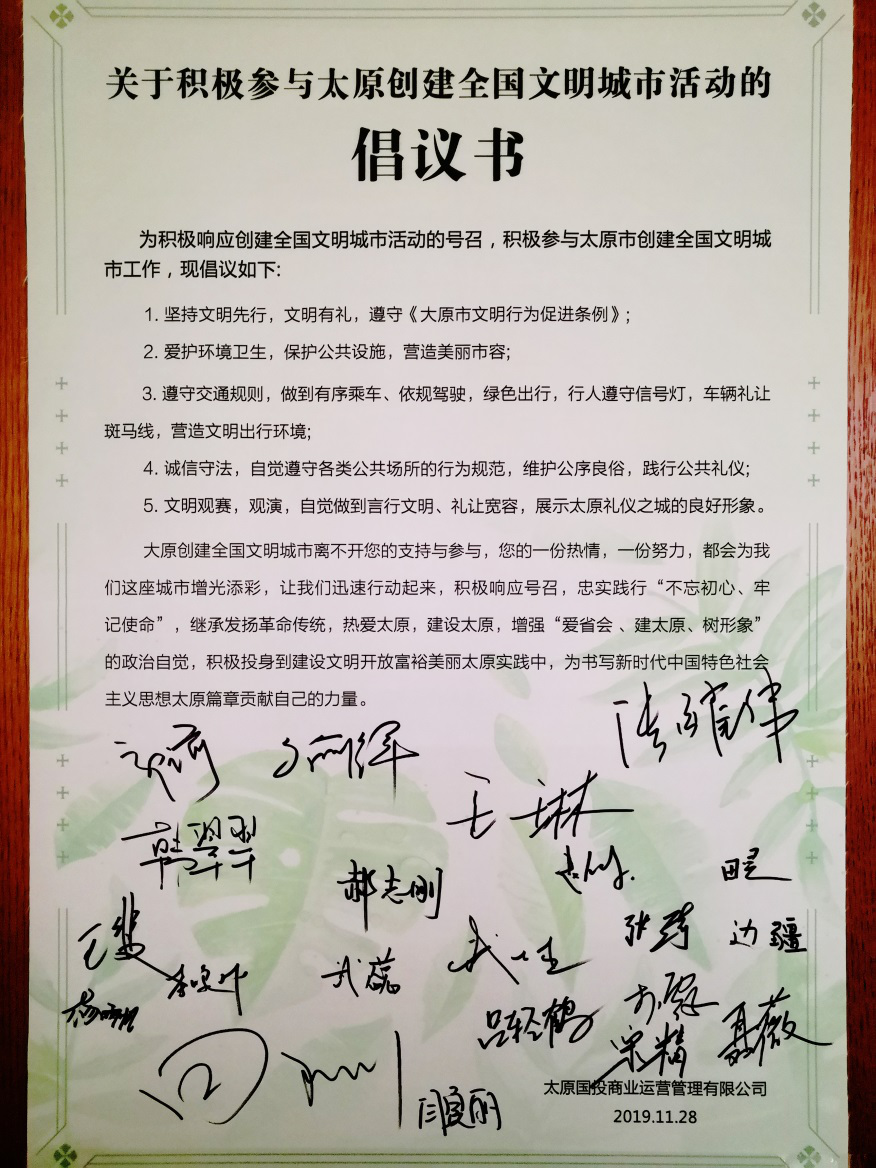 关于积极参与太原创建全国文明城市活动的
倡议书
为积极响应创建全国文明城市活动的号召，积极参与太原市创建全国文明城
市工作，现倡议如下:
1. 坚持文明先行，文明有礼，遵守《大原市文明行为促进条例》;
2. 爱护环境卫生，保护公共设施，营造美丽市容;
3. 遵守交通规则，做到有序乘车、依规驾驶，绿色出行，行人遵守信号灯，车辆礼让
斑马线，营造文明出行环境;
4. 诚信守法，自觉遵守各类公共场所的行为规范，维护公序良俗，践行公共礼仪;
5. 文明观赛，观演，自觉做到言行文明、礼让宽容，展示太原礼仪之城的良好形象。
大原创建全国文明城市离不开您的支持与参与，您的一份热情，一份努力，都会为我
们这座城市增光添彩，让我们迅速行动起来，积极响应号召，忠实践行“不忘初心、牢
记使命”，继承发扬革命传统，热爱太原，建设太原，增强“爱省会 、建太原、树形象”
的政治自觉，积极投身到建设文明开放富裕美丽太原实践中，为书写新时代中国特色社会
主义思想太原篇章贡献自己的力量。
王琳
韩翠翠
郝志刚
边疆
武蕊
吕轻鹤
宋精
聂薇
闫俊丽
太原国投商业运营管理有限公司
2019.11.28